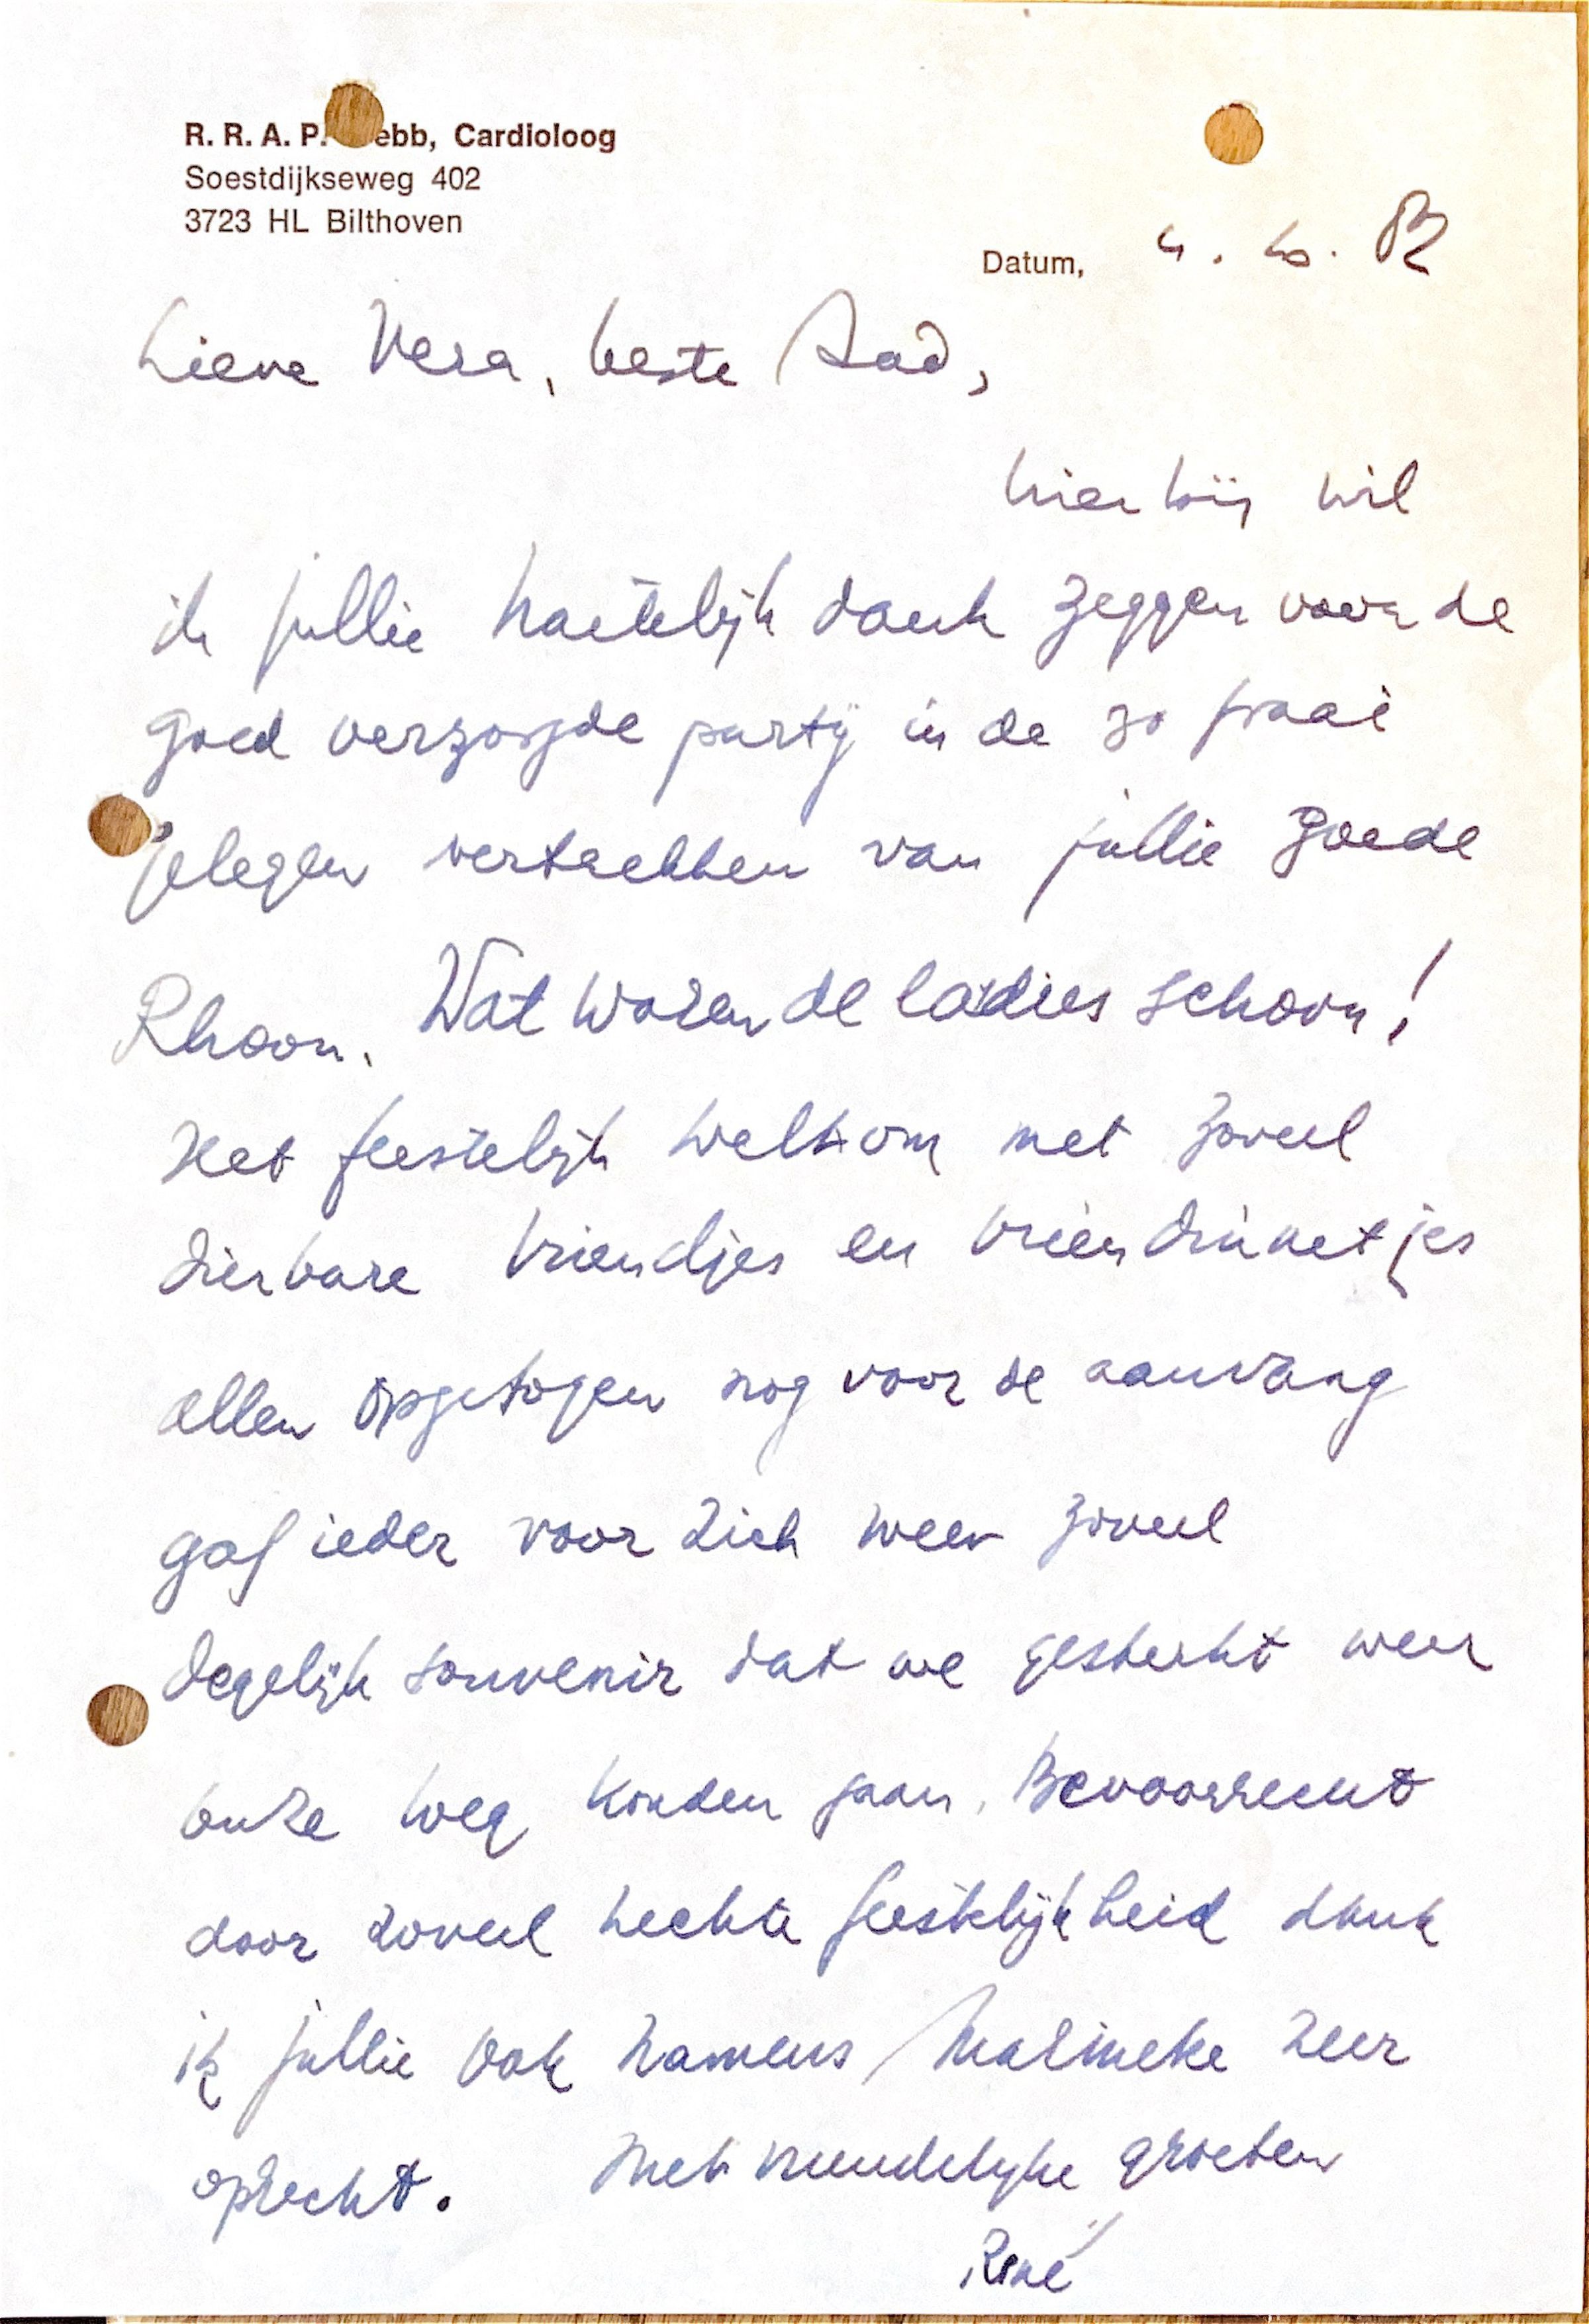 R. R. A. P. ebb, Cardioloog
Soestdijkseweg 402
3723 HL Bilthoven
Datum, 4. 10. 82
Lieve Vera, beste Aad,
hierbij wil
ik jullie hartelijk dank zeggen voor de
goed verzorgde partij in de zo fraai
gelegen vertrekken van jullie goede
Rhoon. Wat waren de ladies schoon!
Het feestelijk welkom met zoveel
dierbare vriendjes en vriendinnetjes
allen opgetogen nog voor de aanvang
gaf ieder voor zich weer zoveel
degelijk souvenir dat we gesterkt weer
onze weg konden gaan. Bevoorrecht
door zoveel hechte feestelijkheid dank
ik jullie ook namens Marineke zeer
oprecht. Met vriendelijke groeten
René